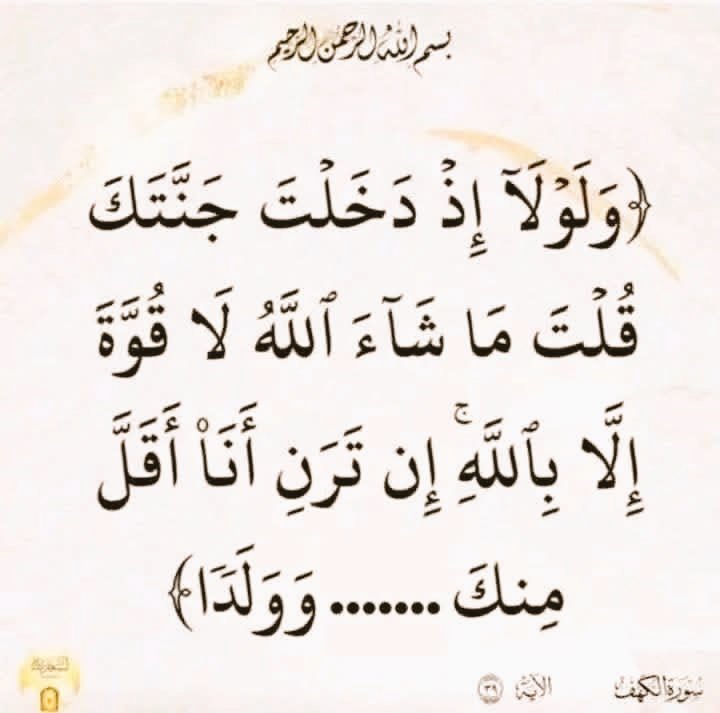 بسم الله الرحمن الرحيم
﴿وَلَوْلَآ إِذْ دَخَلْتَ جَنَّتَكَ
قُلْتَ مَا شَآءَ ٱللَّهُ لَا قُوَّةَ
إِلَّا بِٱللَّهِۚ إِن تَرَنِ أَنَا۠ أَقَلَّ
مِنكَ ....... وَوَلَدَا﴾
سورة الكهف الآية ٣٩